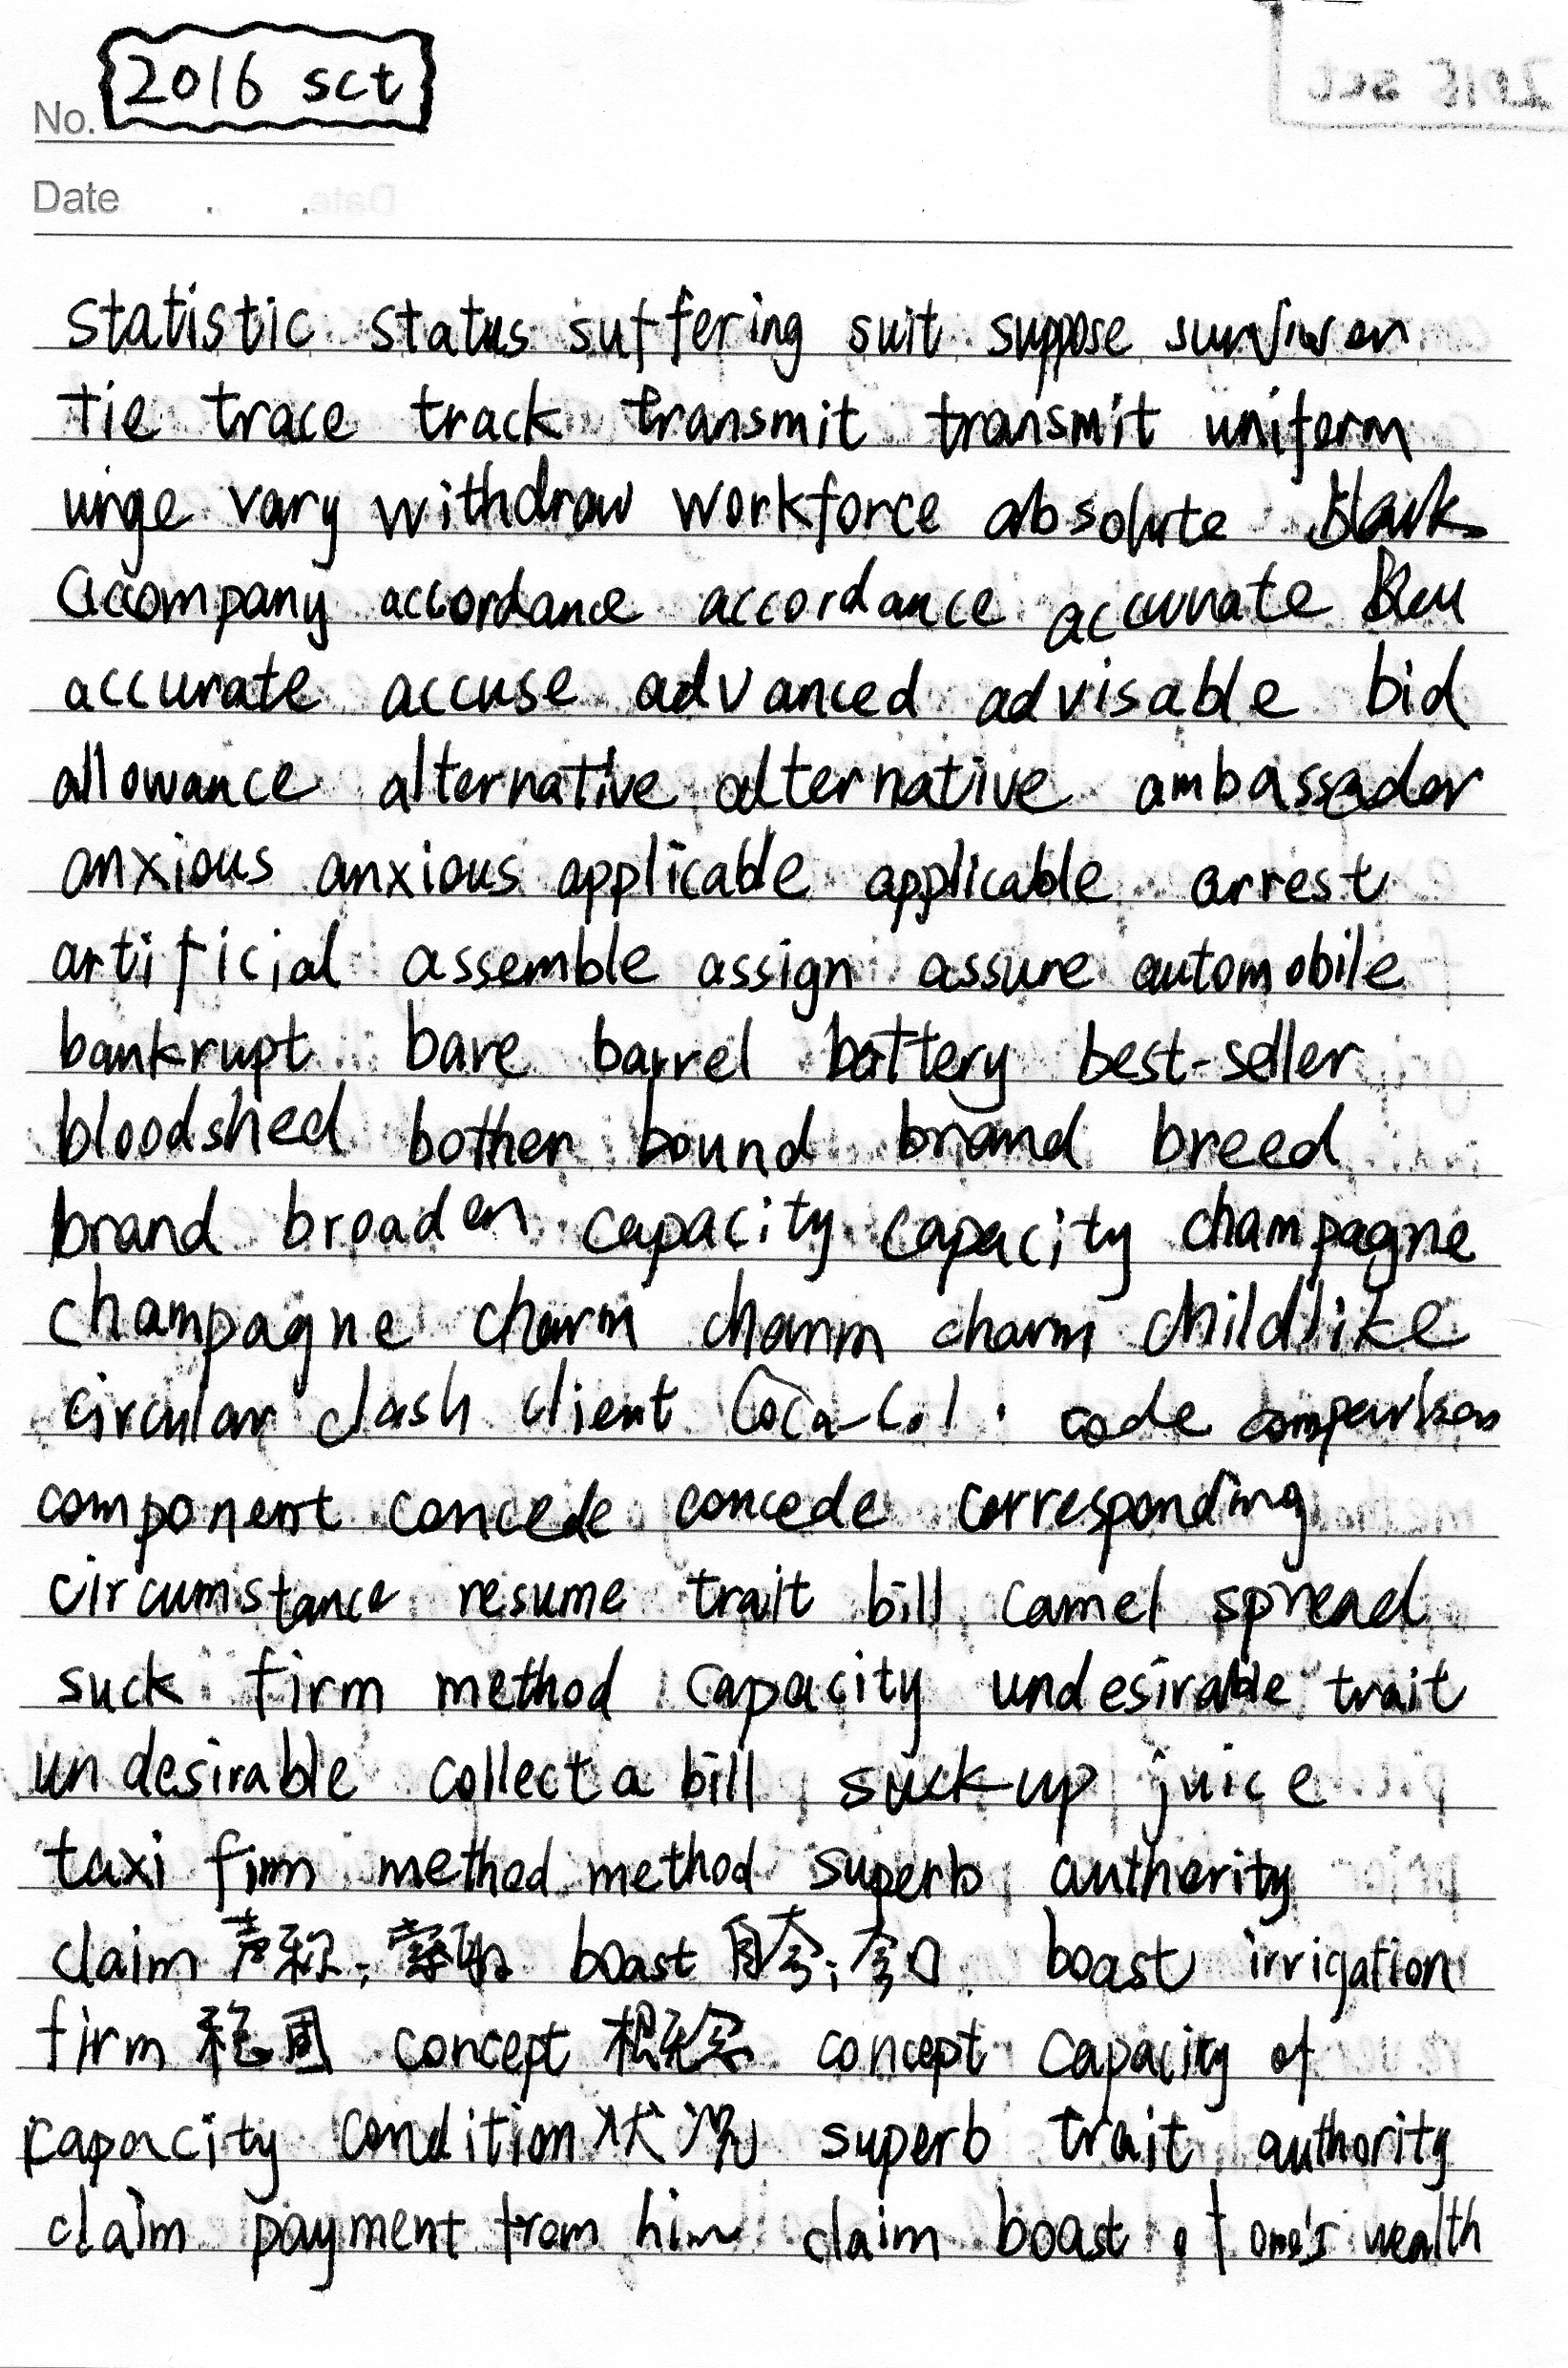 2016 sct
No.
Date . .
statistic status suffering suit suppose
tie trace track transmit transmit uniform
urge vary withdraw workforce absolute
accompany accordance accordance accurate
accurate accuse advanced advisable bid
allowance alternative alternative ambassador
anxious anxious applicable applicable arrest
artificial assemble assign assure automobile
bankrupt bare barrel battery best-seller
bloodshed bother bound brand breed
brand broaden capacity capacity champagne
champagne charm charm charm childlike
circular clash client code comparison
component concede concede corresponding
circumstance resume trait bill camel spread
suck firm method capacity undesirable trait
undesirable collect a bill suck up juice
taxi firm method method superb authority
claim 声称; boast 自夸; 夸口 boast irrigation
firm 稳固 concept 概念 concept capacity of
capacity condition 状况 superb trait authority
claim payment from him claim boast of one's wealth